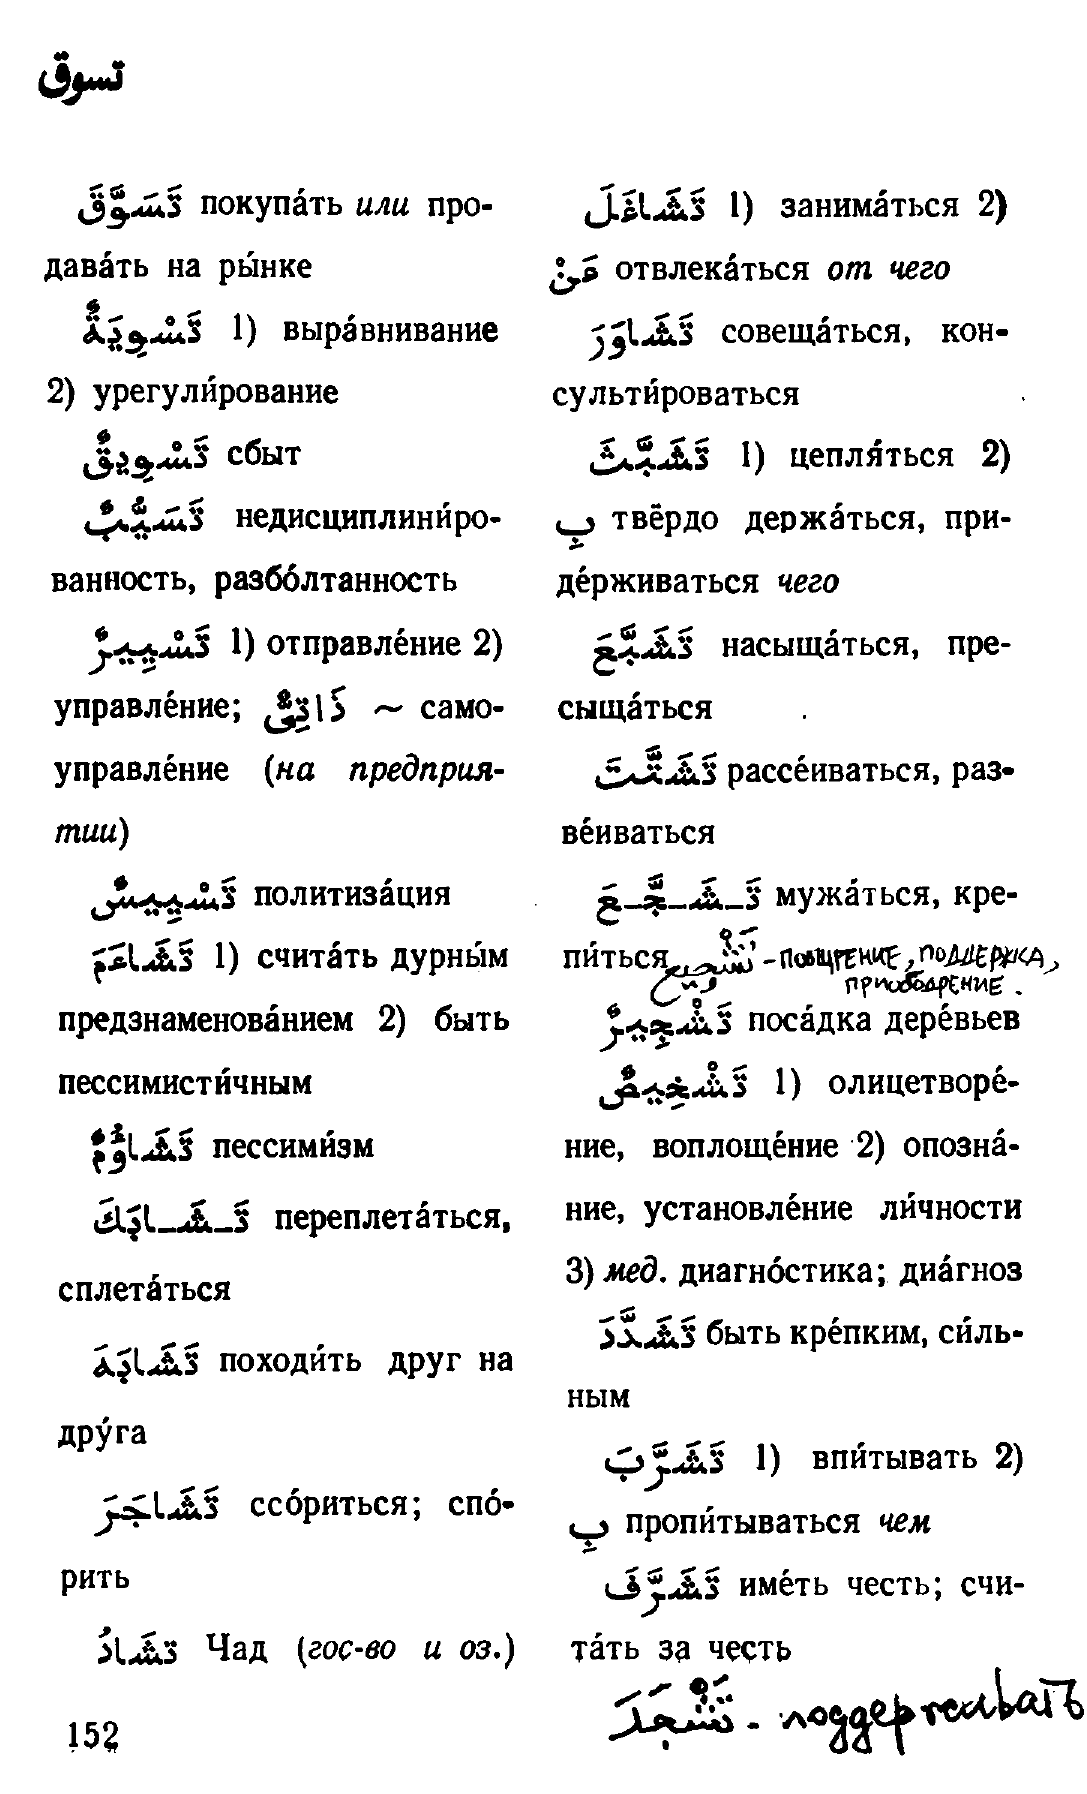 تسوق
تَسَوَّقَ покупа́ть или про-
дава́ть на ры́нке
تَسْوِيَةٌ 1) выра́внивание
2) урегули́рование
تَسْوِيقٌ сбыт
تَسَيُّبٌ недисциплини́ро-
ванность, разбо́лтанность
تَسْيِيرٌ 1) отправле́ние 2)
управле́ние; ذَاتِىٌّ ~ само-
управле́ние (на предприя-
тии)
تَسْيِيسٌ политиза́ция
تَشَاءَمَ 1) счита́ть дурны́м
предзнаменова́нием 2) быть
пессимисти́чным
تَشَاؤُمٌ пессими́зм
تَشَابَكَ переплета́ться,
сплета́ться
تَشَابَهَ походи́ть друг на
дру́га
تَشَاجَرَ ссо́риться; спо́-
рить
تشَادُ Чад (гос-во и оз.)
152
تَشَاغَلَ 1) занима́ться 2)
عَنْ отвлека́ться от чего
تَشَاوَرَ совеща́ться, кон-
сульти́роваться
تَشَبَّثَ 1) цепля́ться 2)
بِ твёрдо держа́ться, при-
де́рживаться чего
تَشَبَّعَ насыща́ться, пре-
сыща́ться
تَشَتَّتَ рассе́иваться, раз-
ве́иваться
تَشَجَّعَ мужа́ться, кре-
пи́ться تَشْجِيع - ПООЩРЕНИЕ, ПОДДЕРЖКА,
ПРИОБОДРЕНИЕ.
تَشْجِيرٌ поса́дка дере́вьев
تَشْخِيصٌ 1) олицетворе́-
ние, воплоще́ние 2) опозна́-
ние, установле́ние ли́чности
3) мед. диагно́стика; диа́гноз
تَشَدَّدَ быть кре́пким, си́ль-
ным
تَشَرَّبَ 1) впи́тывать 2)
بِ пропи́тываться чем
تَشَرَّفَ име́ть честь; счи-
та́ть за честь
- поддерживать